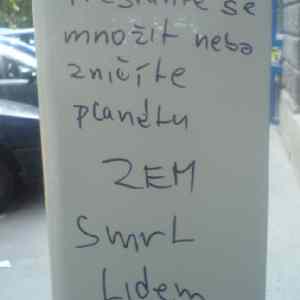 Přestaňte se
množit nebo
zničíte
planétu
ZEM
Smrt
Lidem